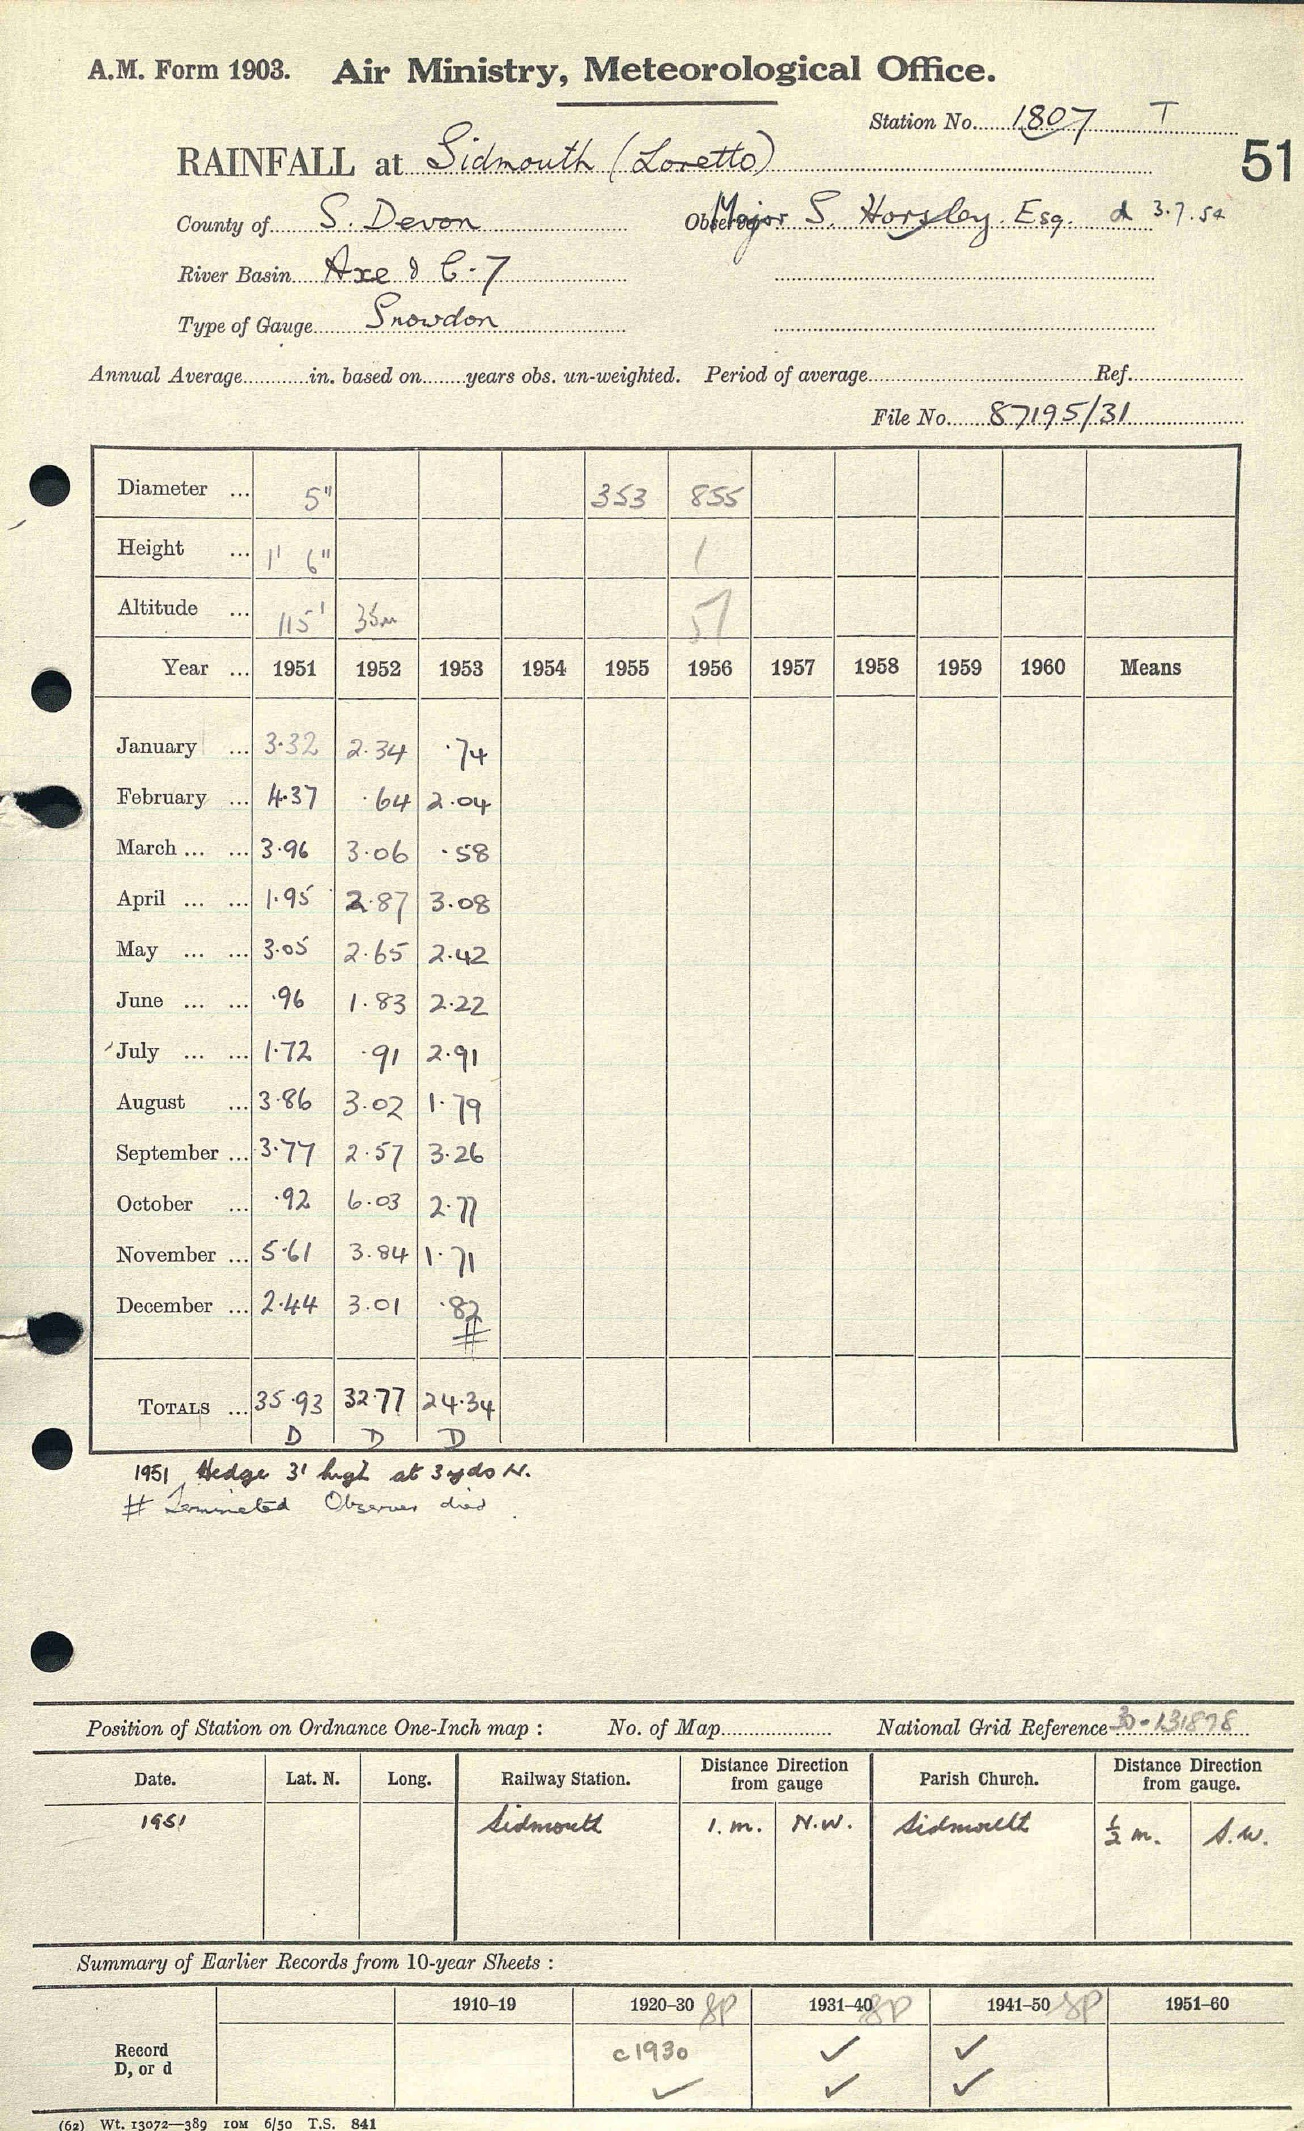 A.M. Form 1903. Air Ministry, Meteorological Office.
Station No. 1807 T
RAINFALL at Sidmouth (Loretto)
51
County of S. Devon Observer Major S. Horsley. Esq. d 3.7.54
River Basin Axe & C-7
Type of Gauge Snowdon
Annual Average in. based on years obs. un-weighted. Period of average Ref.
File No. 87195/31
Diameter ... 5" 353 855
Height ... 1' 6" 1
Altitude ... 115' 35m 51
Year ... 1951 1952 1953 1954 1955 1956 1957 1958 1959 1960 Means
January ... 3.32 2.34 .74
February ... 4.37 .64 2.04
March ... ... 3.96 3.06 .58
April ... ... 1.95 2.87 3.08
May ... ... 3.05 2.65 2.42
June ... ... .96 1.83 2.22
July ... ... 1.72 .91 2.91
August ... 3.86 3.02 1.79
September ... 3.77 2.57 3.26
October ... .92 6.03 2.77
November ... 5.61 3.84 1.71
December ... 2.44 3.01 .82
#
TOTALS ... 35.93 32.77 24.34
D D D
1951 Hedge 3' high at 3 yds N.
# Terminated Observer died
Position of Station on Ordnance One-Inch map : No. of Map National Grid Reference 30-131878
Date. Lat. N. Long. Railway Station. Distance Direction from gauge Parish Church. Distance Direction from gauge.
1951 Sidmouth 1. m. N.W. Sidmouth ½ m. S.W.
Summary of Earlier Records from 10-year Sheets :
1910–19 1920–30 8P 1931–40 8P 1941–50 8P 1951–60
Record c1930 ✓ ✓
D, or d ✓ ✓ ✓
(62) Wt. 13072—389 10M 6/50 T.S. 841